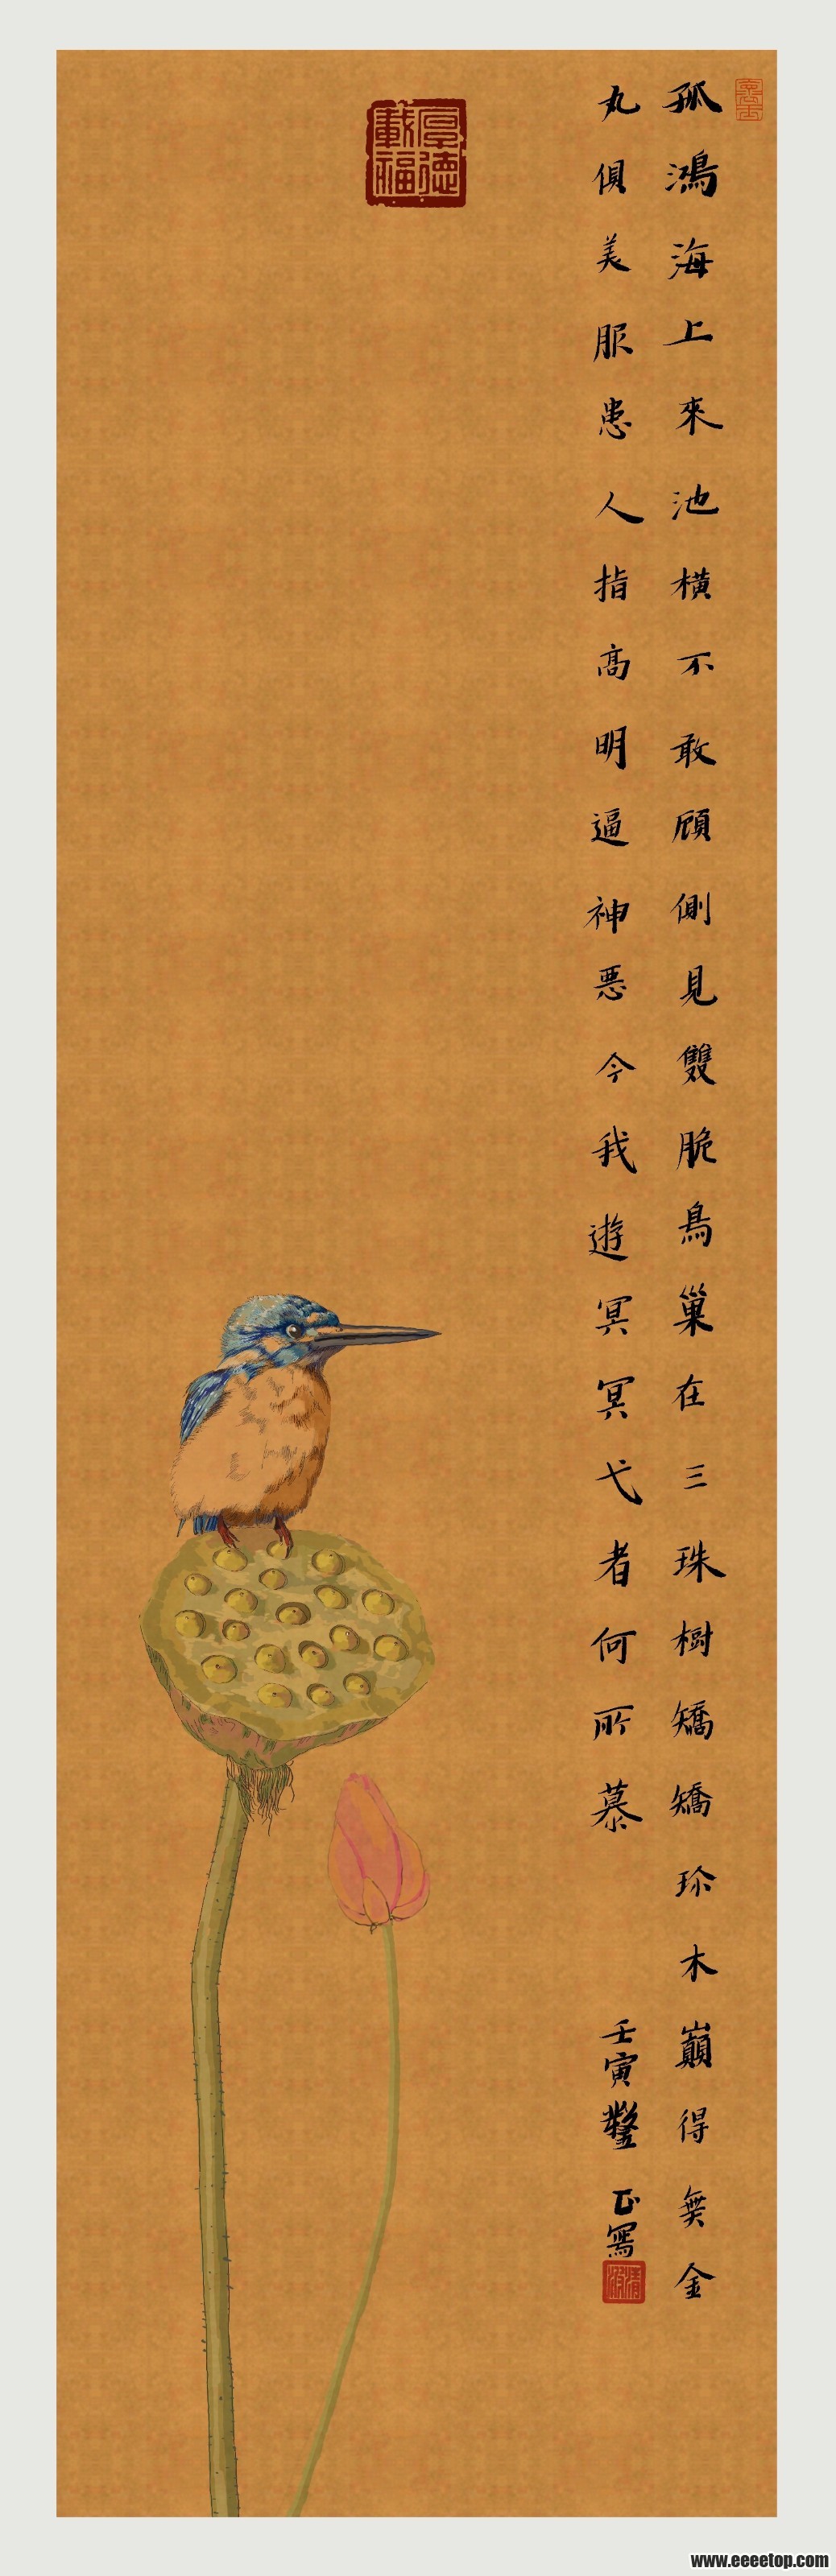 厚德載福
孤鴻海上來池横不敢頋側見雙脆鳥巢在三珠樹矯矯珎木巔得無金
丸俱美服患人指髙明逼神惡今我遊冥冥弋者何所慕
壬寅 正寫
www.eeeetop.com